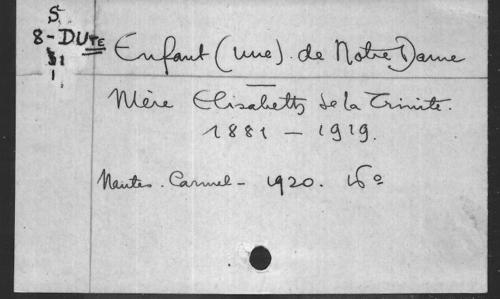 S.
8-DUTE
Enfant (une). de Notre Dame
Mère Elisabeth de la Trinité.
1881 - 1919.
Nantes. Carmel - 1920. 16º